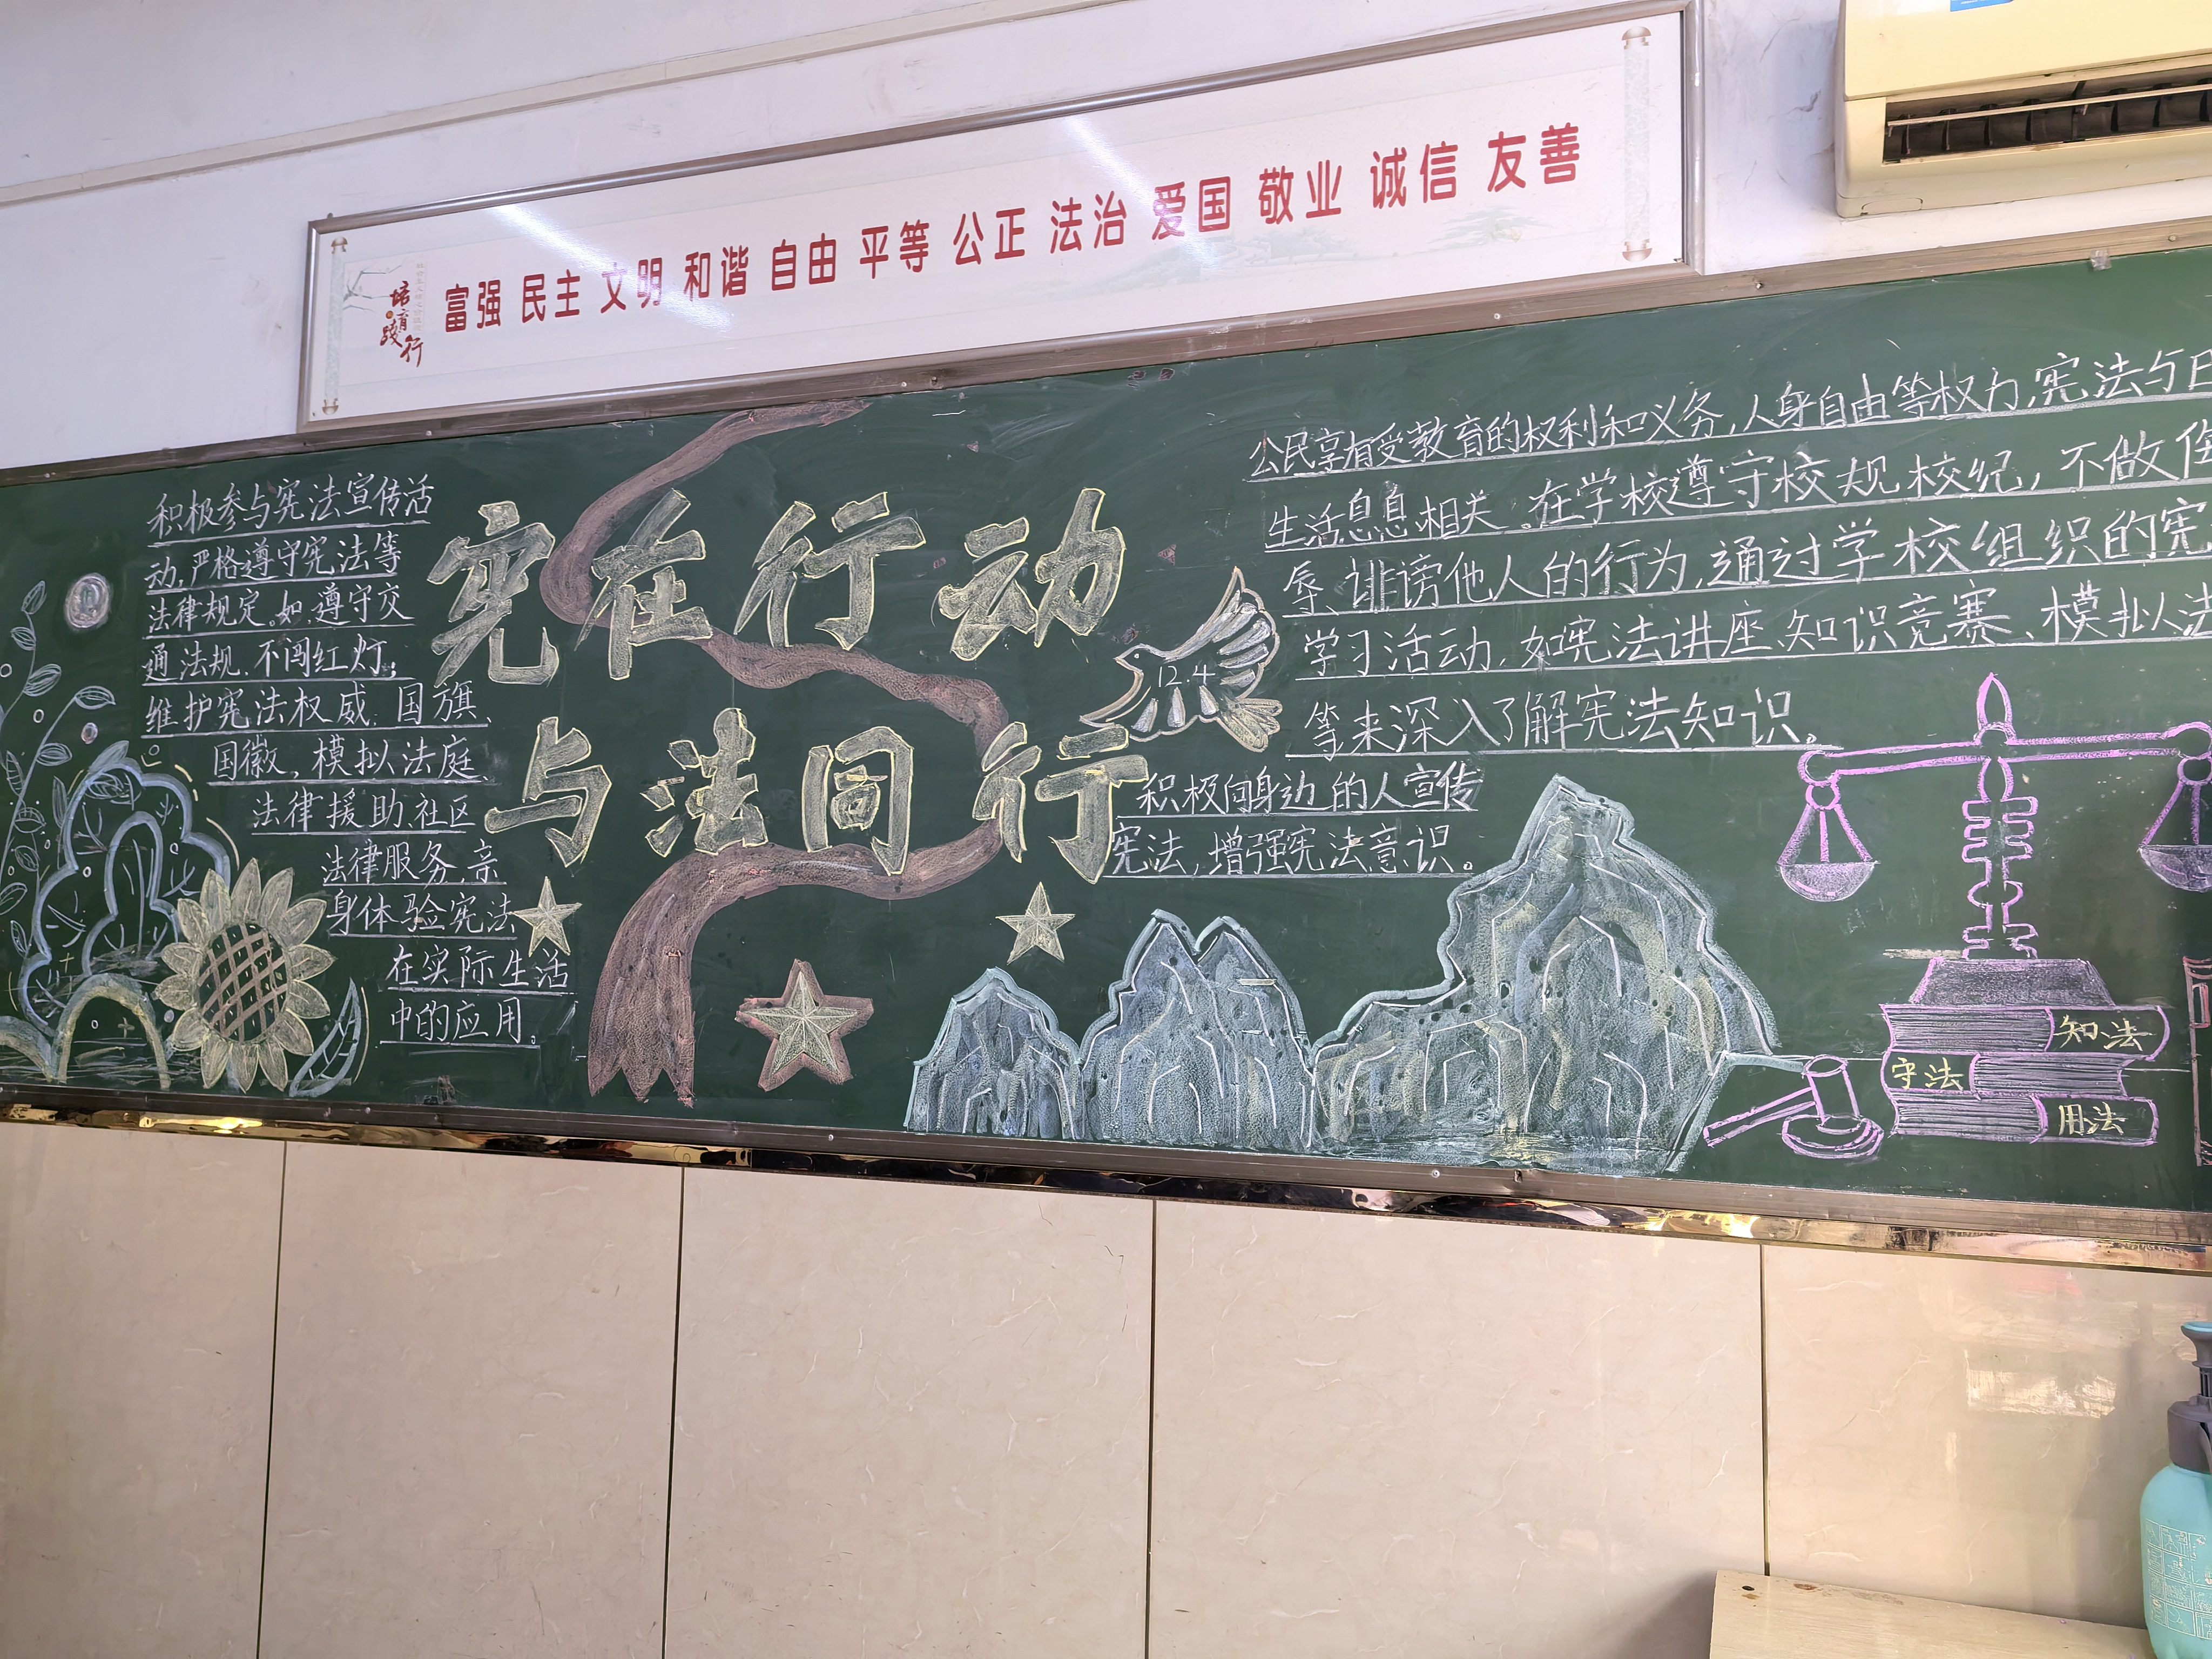 富强 民主 文明 和谐 自由 平等 公正 法治 爱国 敬业 诚信 友善
培育
践行
积极参与宪法宣传活
动,严格遵守宪法等
法律规定。如,遵守交
通法规、不闯红灯;
维护宪法权威、国旗、
国徽,模拟法庭、
法律援助、社区
法律服务,亲
身体验宪法
在实际生活
中的应用。
宪在行动
与法同行
12.4
公民享有受教育的权利和义务,人身自由等权力,宪法与日
生活息息相关。在学校遵守校规校纪,不做侮
辱、诽谤他人的行为,通过学校组织的宪
学习活动,如宪法讲座、知识竞赛、模拟法
等来深入了解宪法知识。
积极向身边的人宣传
宪法,增强宪法意识。
知法
守法
用法